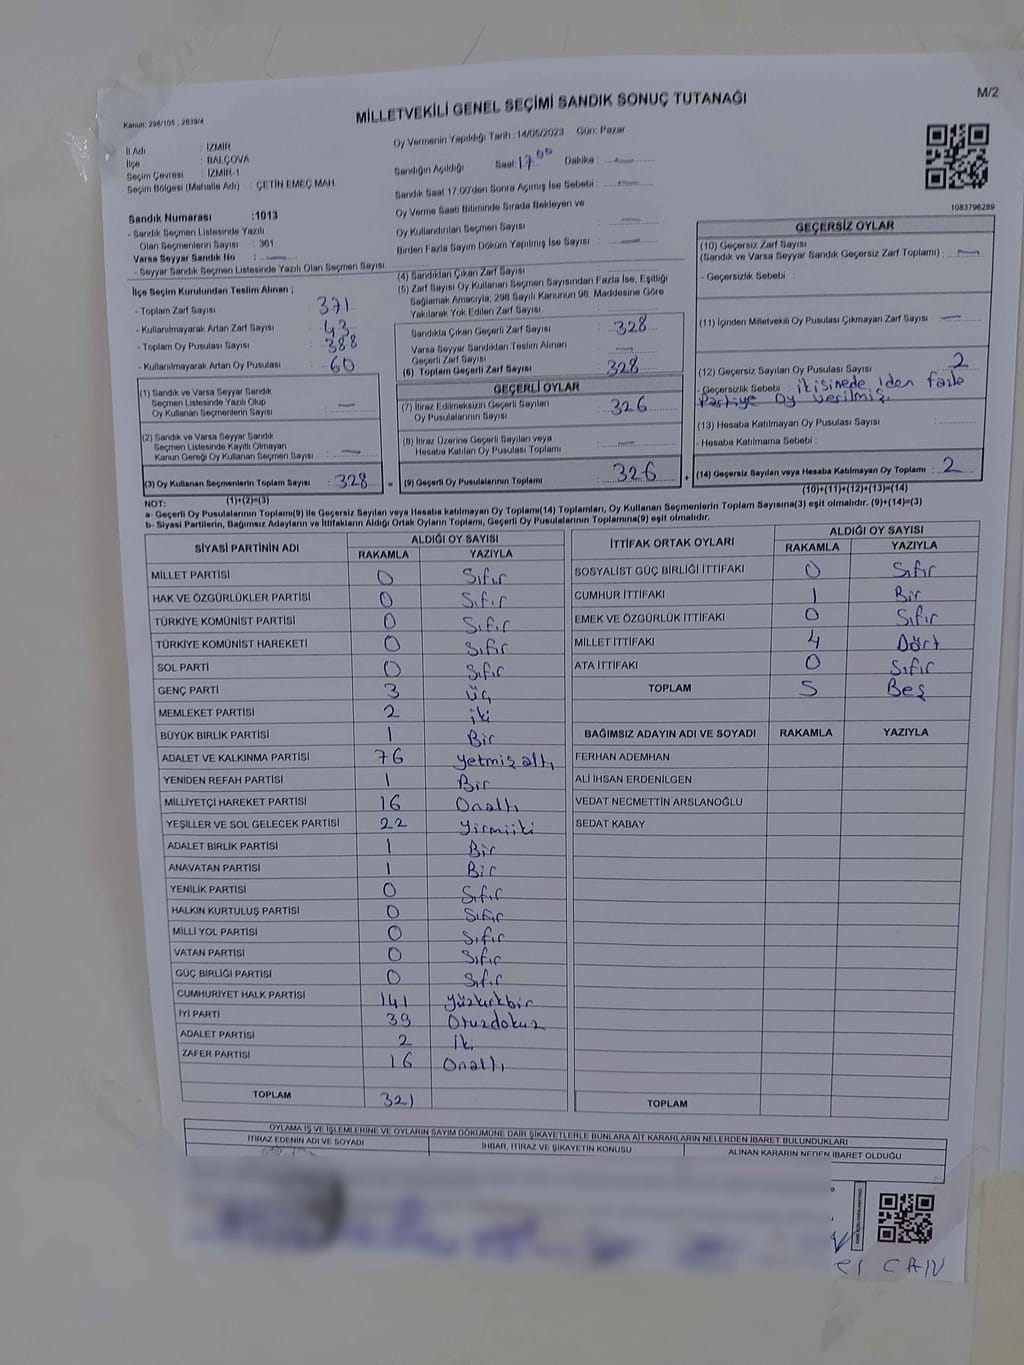 M/2
MİLLETVEKİLİ GENEL SEÇİMİ SANDIK SONUÇ TUTANAĞI
Kanun: 298/105 , 2839/4
İl Adı : İZMİR
İlçe : BALÇOVA
Seçim Çevresi : İZMİR-1
Seçim Bölgesi (Mahalle Adı) : ÇETİN EMEÇ MAH.
Sandık Numarası :1013
- Sandık Seçmen Listesinde Yazılı
Olan Seçmenlerin Sayısı : 361
Varsa Seyyar Sandık No : —
- Seyyar Sandık Seçmen Listesinde Yazılı Olan Seçmen Sayısı:
Oy Vermenin Yapıldığı Tarih :14/05/2023 Gün: Pazar
Sandığın Açıldığı Saat:17.00 Dakika : —
Sandık Saat 17:00'den Sonra Açımış İse Sebebi : —
Oy Verme Saati Bitiminde Sırada Bekleyen ve
Oy Kullandırılan Seçmen Sayısı : —
Birden Fazla Sayım Döküm Yapılmış İse Sayısı : —
1083796289
İlçe Seçim Kurulundan Teslim Alınan ;
- Toplam Zarf Sayısı : 371
- Kullanılmayarak Artan Zarf Sayısı : 43
- Toplam Oy Pusulası Sayısı : 388
- Kullanılmayarak Artan Oy Pusulası : 60
(1) Sandık ve Varsa Seyyar Sandık
Seçmen Listesinde Yazılı Olup
Oy Kullanan Seçmenlerin Sayısı : —
(2) Sandık ve Varsa Seyyar Sandık
Seçmen Listesinde Kayıtlı Olmayan
Kanun Gereği Oy Kullanan Seçmen Sayısı : —
(3) Oy Kullanan Seçmenlerin Toplam Sayısı : 328
(1)+(2)=(3)
(4) Sandıktan Çıkan Zarf Sayısı :
(5) Zarf Sayısı Oy Kullanan Seçmen Sayısından Fazla İse, Eşitliği
Sağlamak Amacıyla; 298 Sayılı Kanunun 98. Maddesine Göre
Yakılarak Yok Edilen Zarf Sayısı :
Sandıkta Çıkan Geçerli Zarf Sayısı : 328
Varsa Seyyar Sandıktan Teslim Alınan
Geçerli Zarf Sayısı : —
(6) Toplam Geçerli Zarf Sayısı : 328
GEÇERLİ OYLAR
(7) İtiraz Edilmeksizin Geçerli Sayılan
Oy Pusulalarının Sayısı : 326
(8) İtiraz Üzerine Geçerli Sayılan veya
Hesaba Katılan Oy Pusulası Toplamı : —
(9) Geçerli Oy Pusulalarının Toplamı : 326
GEÇERSİZ OYLAR
(10) Geçersiz Zarf Sayısı
(Sandık ve Varsa Seyyar Sandık Geçersiz Zarf Toplamı) : —
- Geçersizlik Sebebi :
(11) İçinden Milletvekili Oy Pusulası Çıkmayan Zarf Sayısı : —
(12) Geçersiz Sayılan Oy Pusulası Sayısı : 2
- Geçersizlik Sebebi : ikisinede 1'den fazla
Partiye oy verilmiş.
(13) Hesaba Katılmayan Oy Pusulası Sayısı :
- Hesaba Katılmama Sebebi :
(14) Geçersiz Sayılan veya Hesaba Katılmayan Oy Toplamı : 2
(10)+(11)+(12)+(13)=(14)
NOT:
a- Geçerli Oy Pusulalarının Toplamı(9) ile Geçersiz Sayılan veya Hesaba katılmayan Oy Toplamı(14) Toplamları, Oy Kullanan Seçmenlerin Toplam Sayısına(3) eşit olmalıdır. (9)+(14)=(3)
b- Siyasi Partilerin, Bağımsız Adayların ve İttifakların Aldığı Ortak Oyların Toplamı, Geçerli Oy Pusulalarının Toplamına(9) eşit olmalıdır.
SİYASİ PARTİNİN ADI ALDIĞI OY SAYISI
RAKAMLA YAZIYLA
MİLLET PARTİSİ 0 Sıfır
HAK VE ÖZGÜRLÜKLER PARTİSİ 0 Sıfır
TÜRKİYE KOMÜNİST PARTİSİ 0 Sıfır
TÜRKİYE KOMÜNİST HAREKETİ 0 Sıfır
SOL PARTİ 0 Sıfır
GENÇ PARTİ 3 üç
MEMLEKET PARTİSİ 2 iki
BÜYÜK BİRLİK PARTİSİ 1 Bir
ADALET VE KALKINMA PARTİSİ 76 yetmiş altı
YENİDEN REFAH PARTİSİ 1 Bir
MİLLİYETÇİ HAREKET PARTİSİ 16 Onaltı
YEŞİLLER VE SOL GELECEK PARTİSİ 22 yirmiiki
ADALET BİRLİK PARTİSİ 1 Bir
ANAVATAN PARTİSİ 1 Bir
YENİLİK PARTİSİ 0 Sıfır
HALKIN KURTULUŞ PARTİSİ 0 Sıfır
MİLLİ YOL PARTİSİ 0 Sıfır
VATAN PARTİSİ 0 Sıfır
GÜÇ BİRLİĞİ PARTİSİ 0 Sıfır
CUMHURİYET HALK PARTİSİ 141 yüzkırkbir
İYİ PARTİ 39 Otuzdokuz
ADALET PARTİSİ 2 İki
ZAFER PARTİSİ 16 Onaltı
TOPLAM 321
İTTİFAK ORTAK OYLARI ALDIĞI OY SAYISI
RAKAMLA YAZIYLA
SOSYALİST GÜÇ BİRLİĞİ İTTİFAKI 0 Sıfır
CUMHUR İTTİFAKI 1 Bir
EMEK VE ÖZGÜRLÜK İTTİFAKI 0 Sıfır
MİLLET İTTİFAKI 4 Dört
ATA İTTİFAKI 0 Sıfır
TOPLAM 5 Beş
BAĞIMSIZ ADAYIN ADI VE SOYADI RAKAMLA YAZIYLA
FERHAN ADEMHAN
ALİ İHSAN ERDENİLGEN
VEDAT NECMETTİN ARSLANOĞLU
SEDAT KABAY
TOPLAM
OYLAMA İŞ VE İŞLEMLERİNE VE OYLARIN SAYIM DÖKÜMÜNE DAİR ŞİKAYETLERLE BUNLARA AİT KARARLARIN NELERDEN İBARET BULUNDUKLARI
İTİRAZ EDENİN ADI VE SOYADI İHBAR, İTİRAZ VE ŞİKAYETİN KONUSU ALINAN KARARIN NEDEN İBARET OLDUĞU